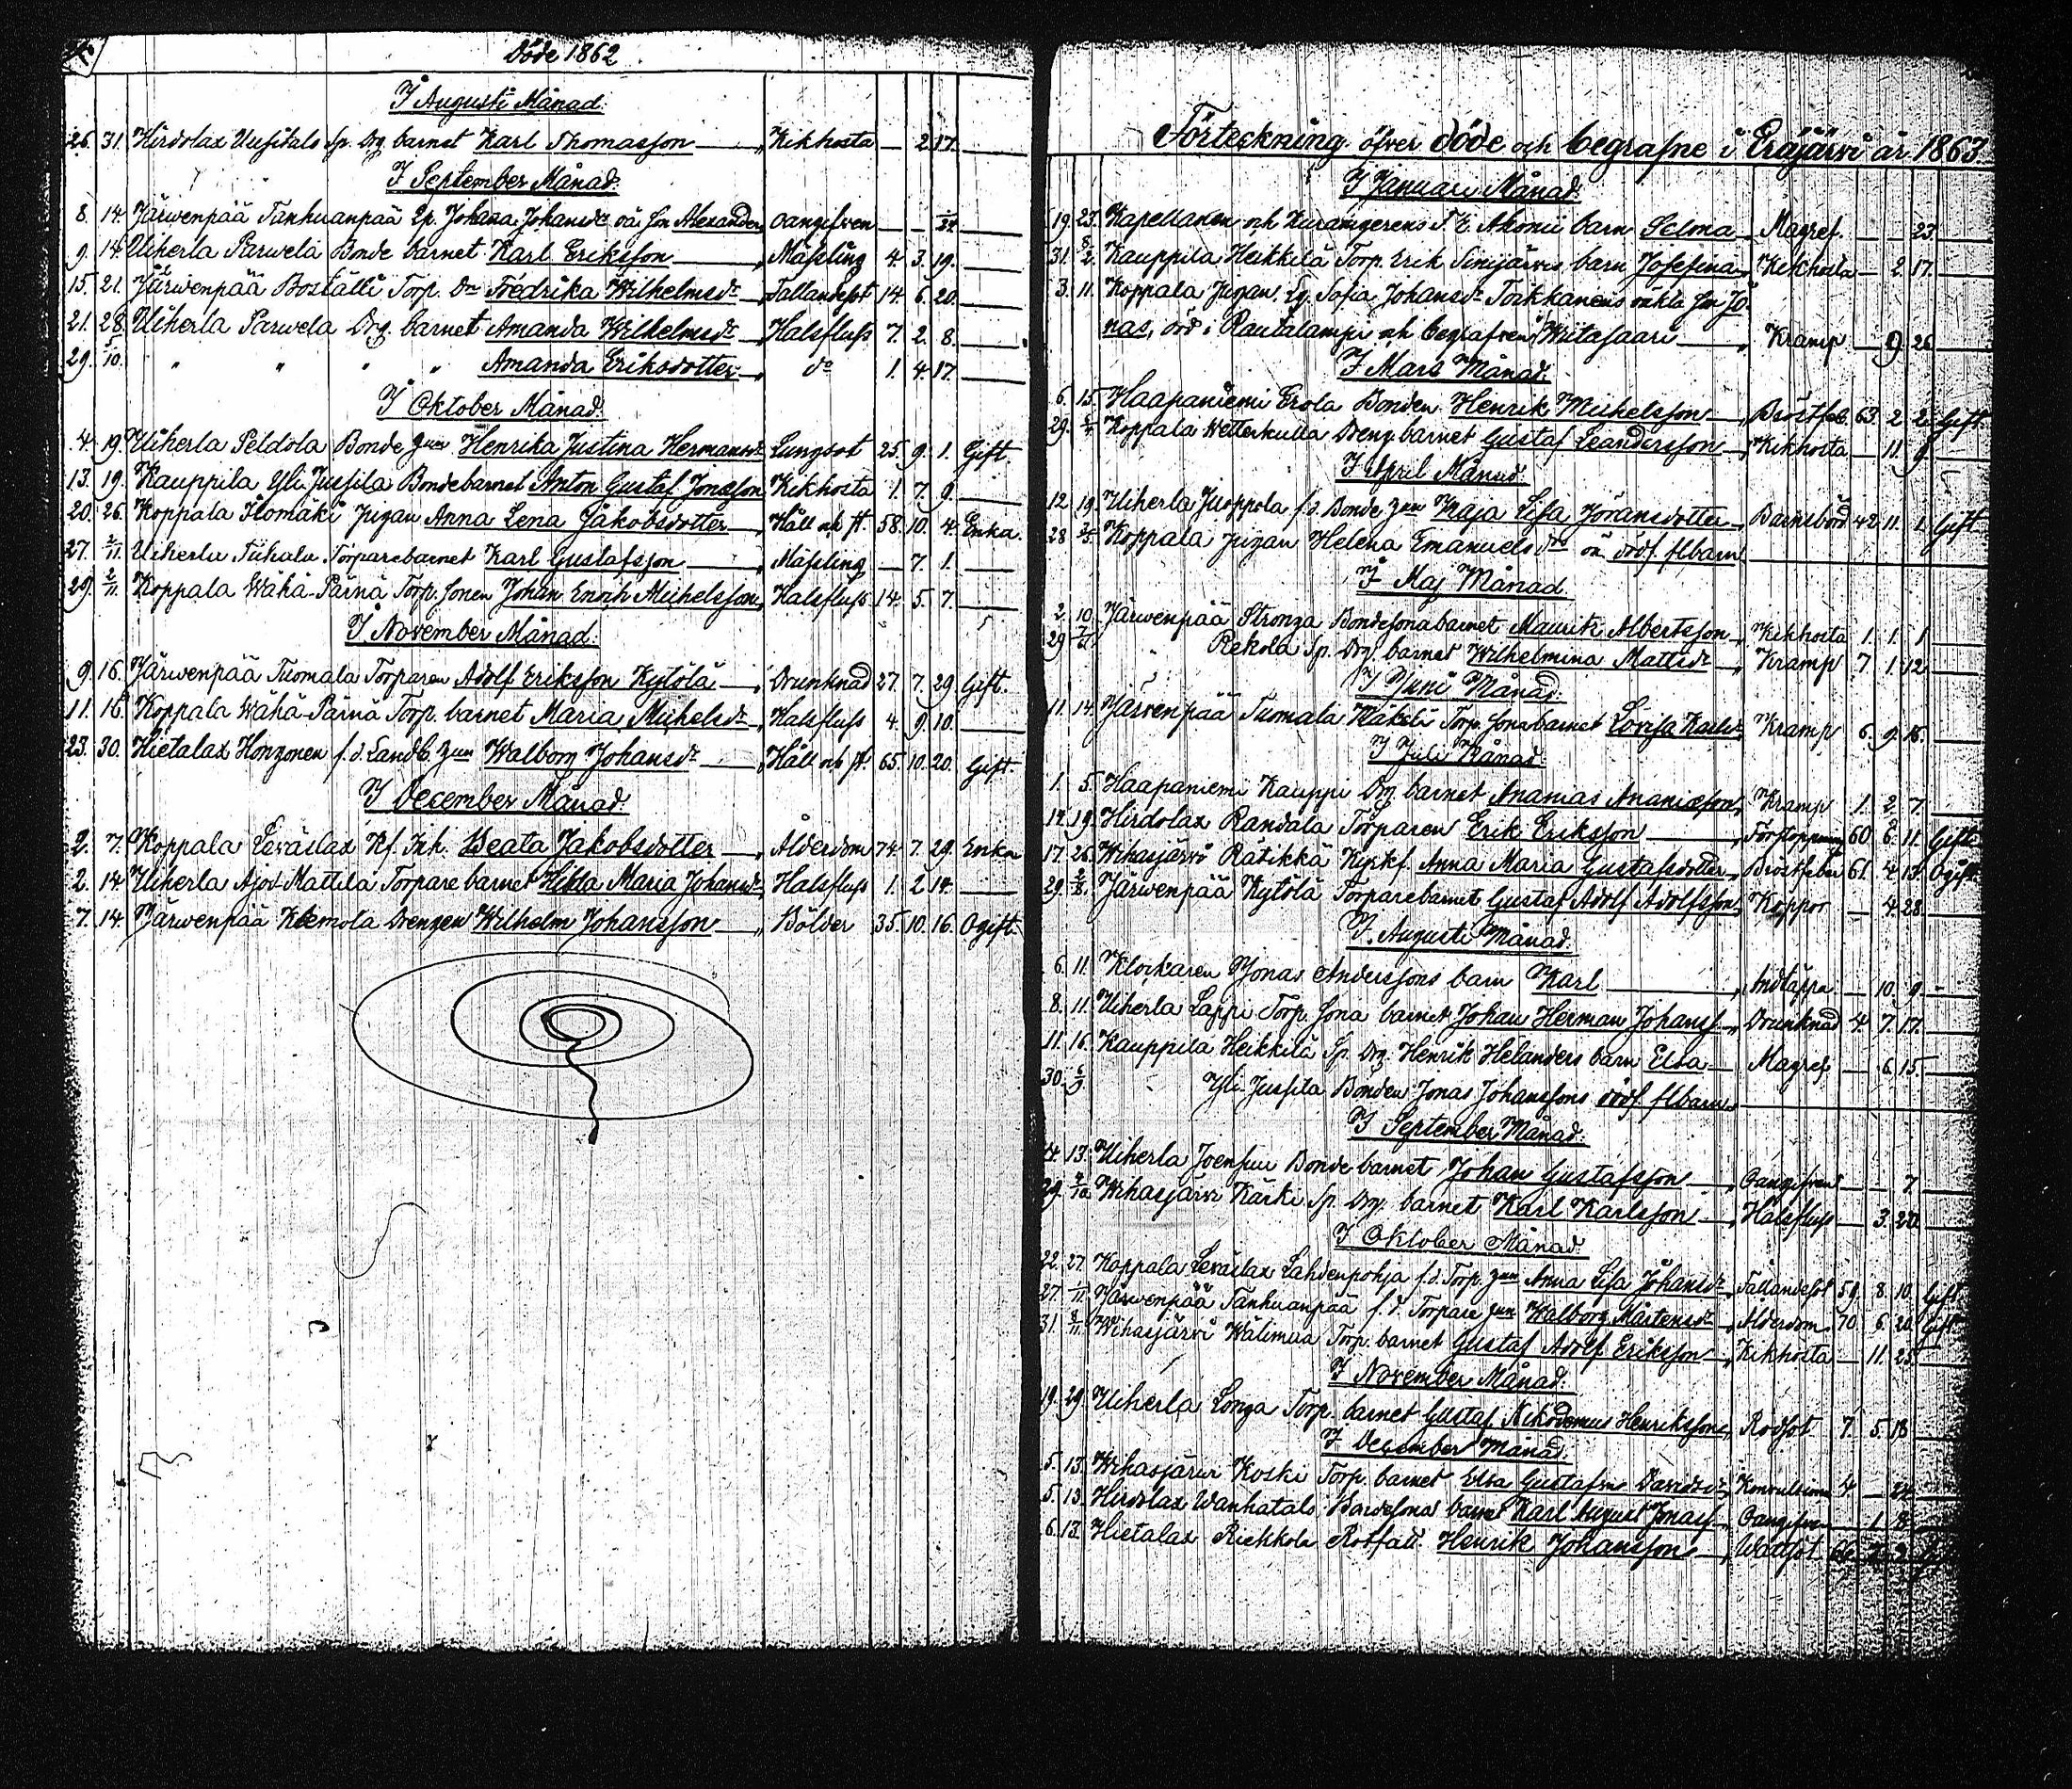 Döde 1862
I Augusti Månad.
26. 31. Hirdolax Uusitalo Sp. Drg. barnet Karl Thomasson " Kikhosta — 2. 17.
I September Månad.
8. 14. Järwenpää Tanhuanpää Ep. Johana Johansdr oä. son Alexander oangifven — —
9. 14. Uiherla Parwela Bonde barnet Karl Eriksson " Mässling 4. 3. 19.
15. 21. Järwenpää Boställi Torp. Dr Fredrika Wilhelmsdr Fallandesot 14. 6. 20.
21. 28. Uiherla Parwela Drg. barnet Amanda Wilhelmsdr Halsfluss 7. 2. 8.
29. 5/10. " " " " Amanda Eriksdotter " do 1. 4. 17.
I Oktober Månad.
4. 19. Uiherla Peldola Bonde hun Henrika Justina Hermansdr Lungsot 25. 9. 1. Gift.
13. 19. Kauppila Yli Jussila Bondebarnet Anton Gustaf Jonasson Kikhosta 1. 7. 9.
20. 26. Koppala Ilomäki Jngan Anna Lena Jakobsdotter " Håll och st. 58. 10. 4. Enka.
27. 2/11. Uiherla Tiihala Torparebarnet Karl Gustafsson " Mässling — 7. 1.
29. 2/11. Koppala Wähä-Pärnä Torp. sonen Johan Enoch Michelsson " Halsfluss 14. 5. 7.
I November Månad.
9. 16. Järwenpää Tuomala Torparen Adolf Eriksson Kytölä " Drunknad 27. 7. 29. Gift.
11. 16. Koppala Wähä-Pärnä Torp. barnet Maria Michelsdr " Halsfluss 4. 9. 10.
23. 30. Hietalax Honzonen f.d. Landb. hun Walborg Johansdr " Håll och st. 65. 10. 20. Gift.
I December Månad.
2. 7. Koppala Leväslax Kf. Inh. Beata Jakobsdotter " Ålderdom 74. 7. 29. Enka
2. 14. Uiherla Ajos-Mattila Torpare barnet Hilda Maria Johansdr " Halsfluss 1. 2. 14.
7. 14. Järwenpää Klemola Drengen Wilhelm Johansson " Bölder 35. 10. 16. Ogift.
Förteckning öfver döde och begrafne i Eräjärvi år 1863
I Januari Månad.
19. 25. Kapellanen och F. E. Akonii barn Selma " Magref. — — 23.
31. 8/2. Kauppila Heikkilä Torp. Erik Sinijärvis barn Josefina " Kikhosta — 2. 17.
3. 11. Koppala Jngan Sofia Johansdr Toikkanens oäkta son Jo-
nas, död i Rautalampi och begrafven i Wiitasaari " Kramp — 9. 26.
I Mars Månad.
6. 15. Haapaniemi Erola Bonden Henrik Michelsson " Bröstfeb. 63. 2. 2. Gift.
29. 5/4. Koppala Wetterkulla Dreng barnet Gustaf Leandersson " Kikhosta — 11. 9.
I April Månad.
12. 19. Uiherla Juoppola f.d. Bonde hun Kaja Lisa Jöransdotter " Barnsbörd 42. 11. 1. Gift
28. Koppala Jngan Helena Emanuelsdr oä. dödf. flbarn
I Maj Månad.
2. 10. Järwenpää Stronga Bondesonabarnet Maurits Albertsson " Kikhosta 1. 1. 1.
29. " Rekola Sp. Drg. barnet Wilhelmina Mattsdr " Kramp 7. 1. 12.
I Juni Månad.
11. 14. Järwenpää Tuomala Mäkelä Torp. sonabarnet Lovisa Karlsdr " Kramp 6. 9. 16.
I Juli Månad.
1. 5. Haapaniemi Kauppi Drg. barnet Ananias Ananiasson " Kramp 1. 2. 7.
14. 19. Hirdolax Randala Torparen Erik Eriksson " Förstoppning 60. 6. 11. Gift.
17. 26. Wihasjärvi Rätikkä Anna Maria Gustafsdotter " Bröstfeber 61. 4. Ogift.
29. 2/8. Järwenpää Kytölä Torparebarnet Gustaf Adolf Adolfsson " Koppor — 4. 28.
I Augusti Månad.
6. 11. Klockaren Jonas Anderssons barn Karl " Andtäppa. — 10. 9.
8. 11. Uiherla Lappi Torp. sona barnet Johan Herman Johanss. " Drunknad 4. 7. 17.
11. 16. Kauppila Heikkilä Sp. Drg. Henrik Helanders barn Elsa " Magref — 6. 15.
30. 6/9. " Yli Jussila Bonden Jonas Johanssons dödf. flbarn
I September Månad.
4. 13. Uiherla Joensuu Bonde barnet Johan Gustafsson " Oangifven — — 7.
29. 4/10. Wihasjärvi Kärki Sp. Drg. barnet Karl Karlsson " Halsfluss — 3. 20.
I Oktober Månad.
22. 27. Koppala Leväslax Lahdenpohja f.d. Torp. hun Anna Lisa Johansdr " Fallandesot 59. 8. 10. Gift
27. 1/11. Järwenpää Tanhuanpää f.d. Torpare hun Walborg Mårtensdr " Ålderdom 70. 6. 20. Gift
31. 8/11. Wihasjärvi Wälimaa Torp. barnet Gustaf Adolf Eriksson " Kikhosta — 11. 25.
I November Månad.
19. 29. Uiherla Longa Torp. barnet Gustaf Nikodemus Henriksson " Rödsot 7. 5. 18.
I December Månad.
5. 13. Wihasjärvi Koski Torp. barnet Elsa Gustafva Davidsdr " Konvulsioner 4. —
5. 13. Hirdolax Wanhatalo Bondesona barnet Karl August Jonass. " Oangifven — 1. 8.
6. 13. Hietalax Riekkola Rotfatt. Henrik Johansson " Wattsot